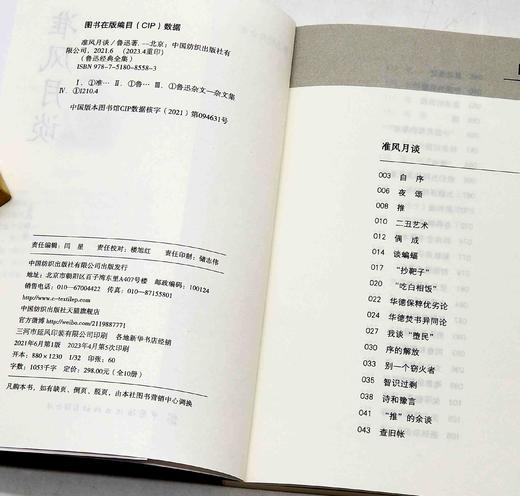 图书在版编目（CIP）数据
准风月谈 / 鲁迅著. --北京：中国纺织出版社有
限公司，2021.6 （2023.4重印）
（鲁迅经典全集）
ISBN 978-7-5180-8558-3
Ⅰ. ①准… Ⅱ. ①鲁… Ⅲ. ①鲁迅杂文—杂文集
Ⅳ. ①I210.4
中国版本图书馆CIP数据核字（2021）第094631号
责任编辑：闫 星 责任校对：楼旭红 责任印制：储志伟
中国纺织出版社有限公司出版发行
地址：北京市朝阳区百子湾东里A407号楼 邮政编码：100124
销售电话：010—67004422 传真：010—87155801
http://www.c-textilep.com
中国纺织出版社天猫旗舰店
官方微博 http://weibo.com/2119887771
三河市延风印装有限公司印刷 各地新华书店经销
2021年6月第1版 2023年4月第5次印刷
开本：880×1230 1/32 印张：60
字数：1053千字 定价：298.00元（全10册）
凡购本书，如有缺页、倒页、脱页，由本社图书营销中心调换
准风月谈
003 自 序
006 夜 颂
008 推
010 二丑艺术
012 偶 成
014 谈蝙蝠
017 “抄靶子”
020 “吃白相饭”
022 华德保粹优劣论
024 华德焚书异同论
027 我谈“堕民”
030 序的解放
033 别一个窃火者
035 智识过剩
038 诗和豫言
041 “推”的余谈
043 查旧帐